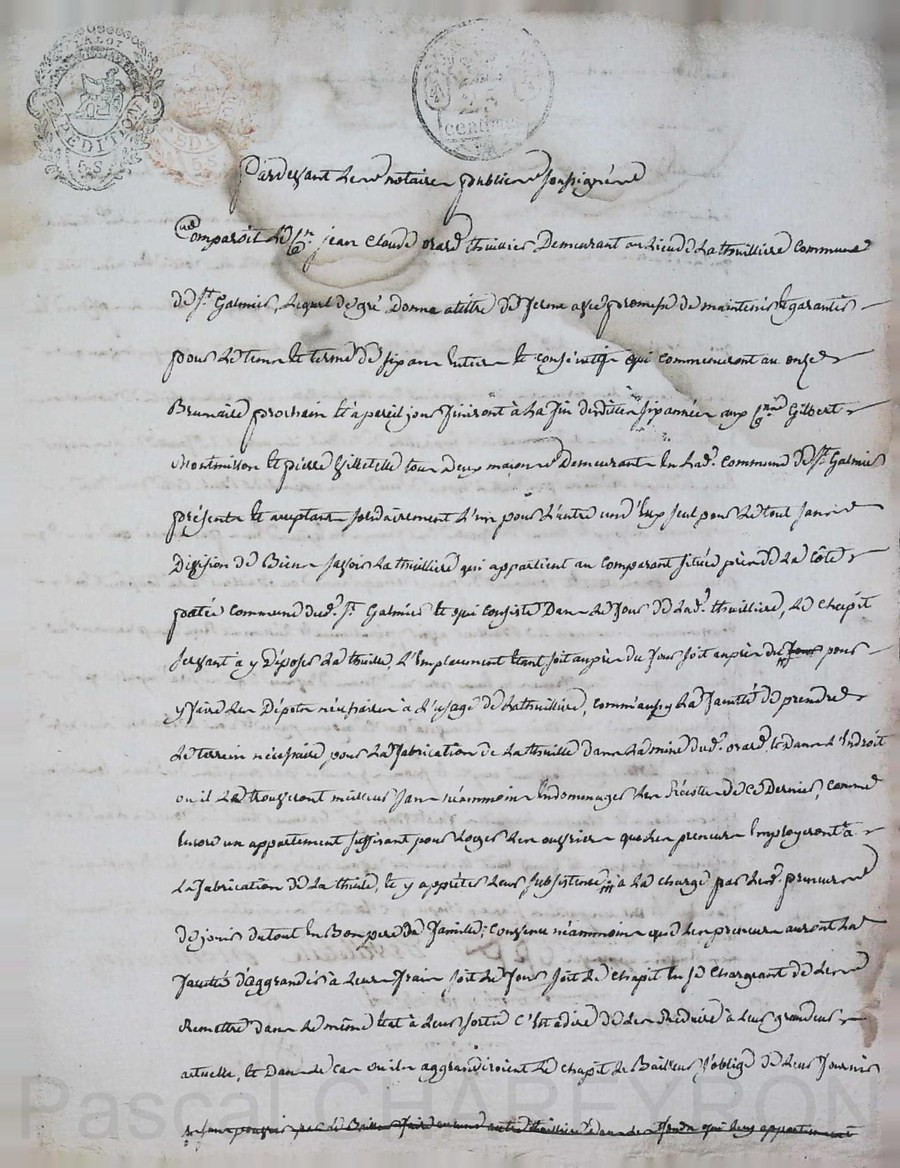 EXPEDITION
5 S
25
centimes
Pardevant Les notaires publics soussignés
Comparoit Le Cen. jean Claude orard thuillier Demeurant au Lieu de La thuilliere Commune
de St. Galmier, Lequel de gré donne atittre de ferme avec promesse de maintenir et garantir
pour Le tems et terme de six ans Entiers et consécutifs qui commenceront au onze
Brumaire prochain et apareil jour finiront à La fin desdittes six années aux Cens. Gilbert
Montmisson et pierre Villetelle tous deux maçons Demeurants En Lad. commune de St. Galmier
présents et acceptants solidairement L'un pour L'autre un d'Eux seul pour Le tout sans
Division de Biens savoir La thuilliere qui appartient au comparant située près de La côte
commune dud. St. Galmier et qui consiste Dans Le four de Lad. thuilliere, Le chapit
servant a y Déposer La thuille, L'Emplacement étant soit auprès du four soit auprès du four pour
y faire Les Dépots nécessaires à L'usage de La thuilliere, comm'aussy La faculté de prendre
Le terrein nécessaire pour La fabrication de La thuille dans La mine dud. orard, et dans L'Endroit
ou il La trouveront meilleur sans néammoins Endommager Les Récoltes de ce Dernier, comme
Encore un appartement suffisant pour Loger Les ouvriers que Les preneurs Employeront à
La fabrication de La thuile, et y appréter Leur subsistence, à La charge par Lesd. preneurs
de jouir du tout En Bon pere de famille; convenu néammoins que Les preneurs auront La
faculté d'aggrandir à Leurs frais soit Le four soit Le chapit En se chargeant de Les
Remettre dans Le même état à Leur sortie C'est adire de Les Réduire à Leur grandeur
actuelle, et Dans Le cas ou ils aggrandiroient Le chapit Le Bailleur s'oblige de Leur fournir
Pascal CHAPEYRON